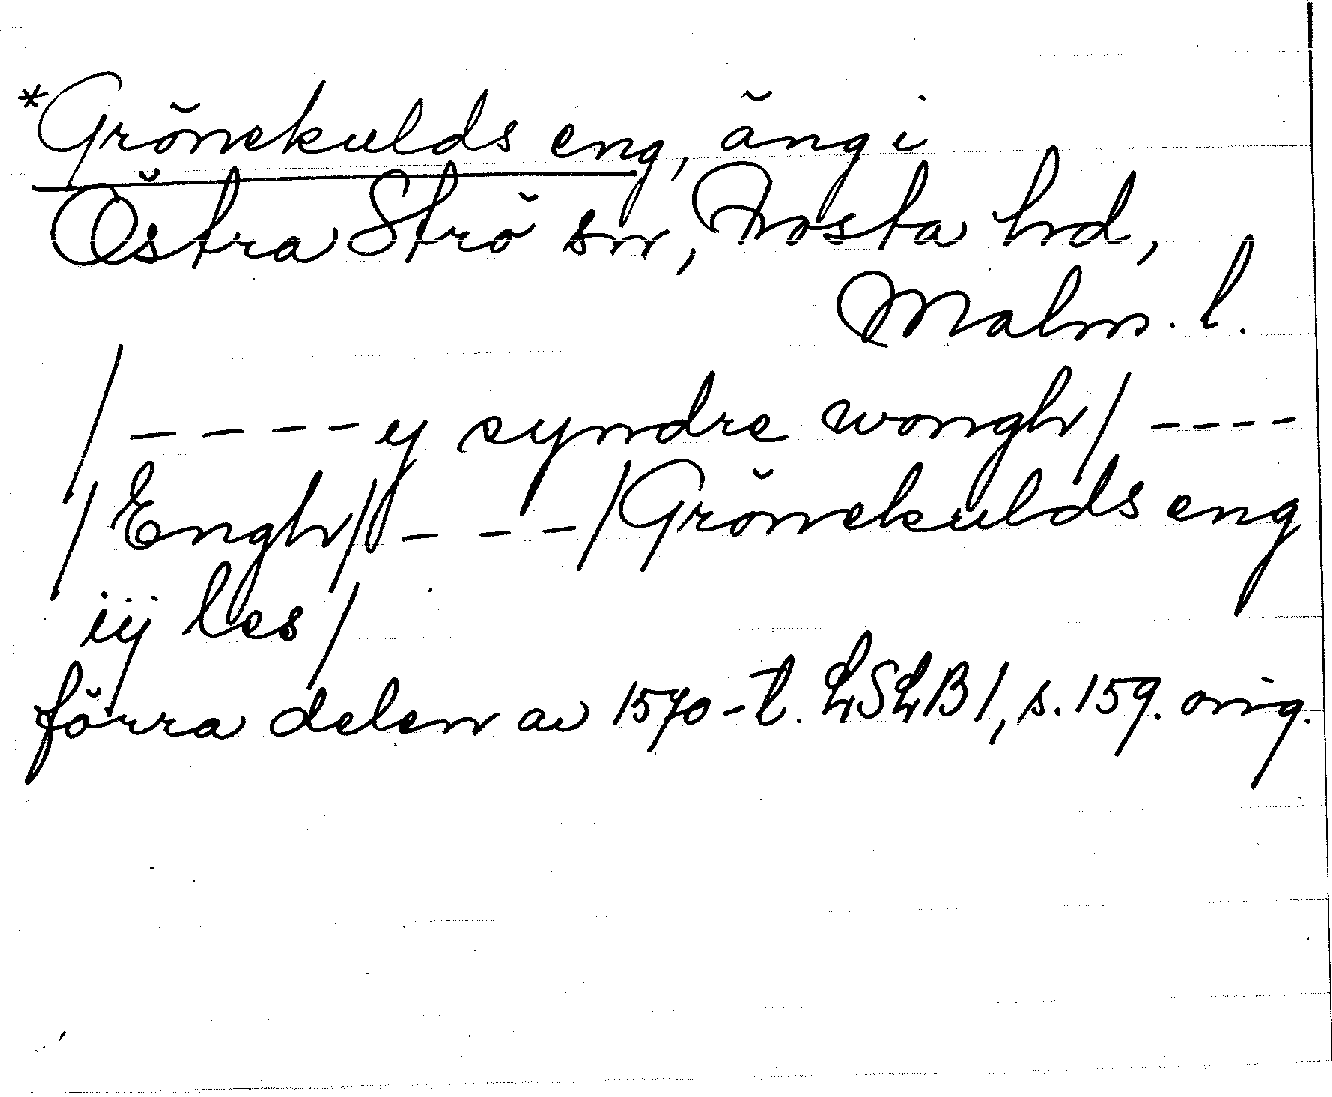 *Grönekulds eng, äng i
Östra Strö sn, Frosta hd,
Malm. l.
/ - - - - y syndre wongh / - - - -
/ Engh / - - - / Grönekulds eng
iij les /
förra delen av 1570-t. LSLB 1, s. 159. orig.